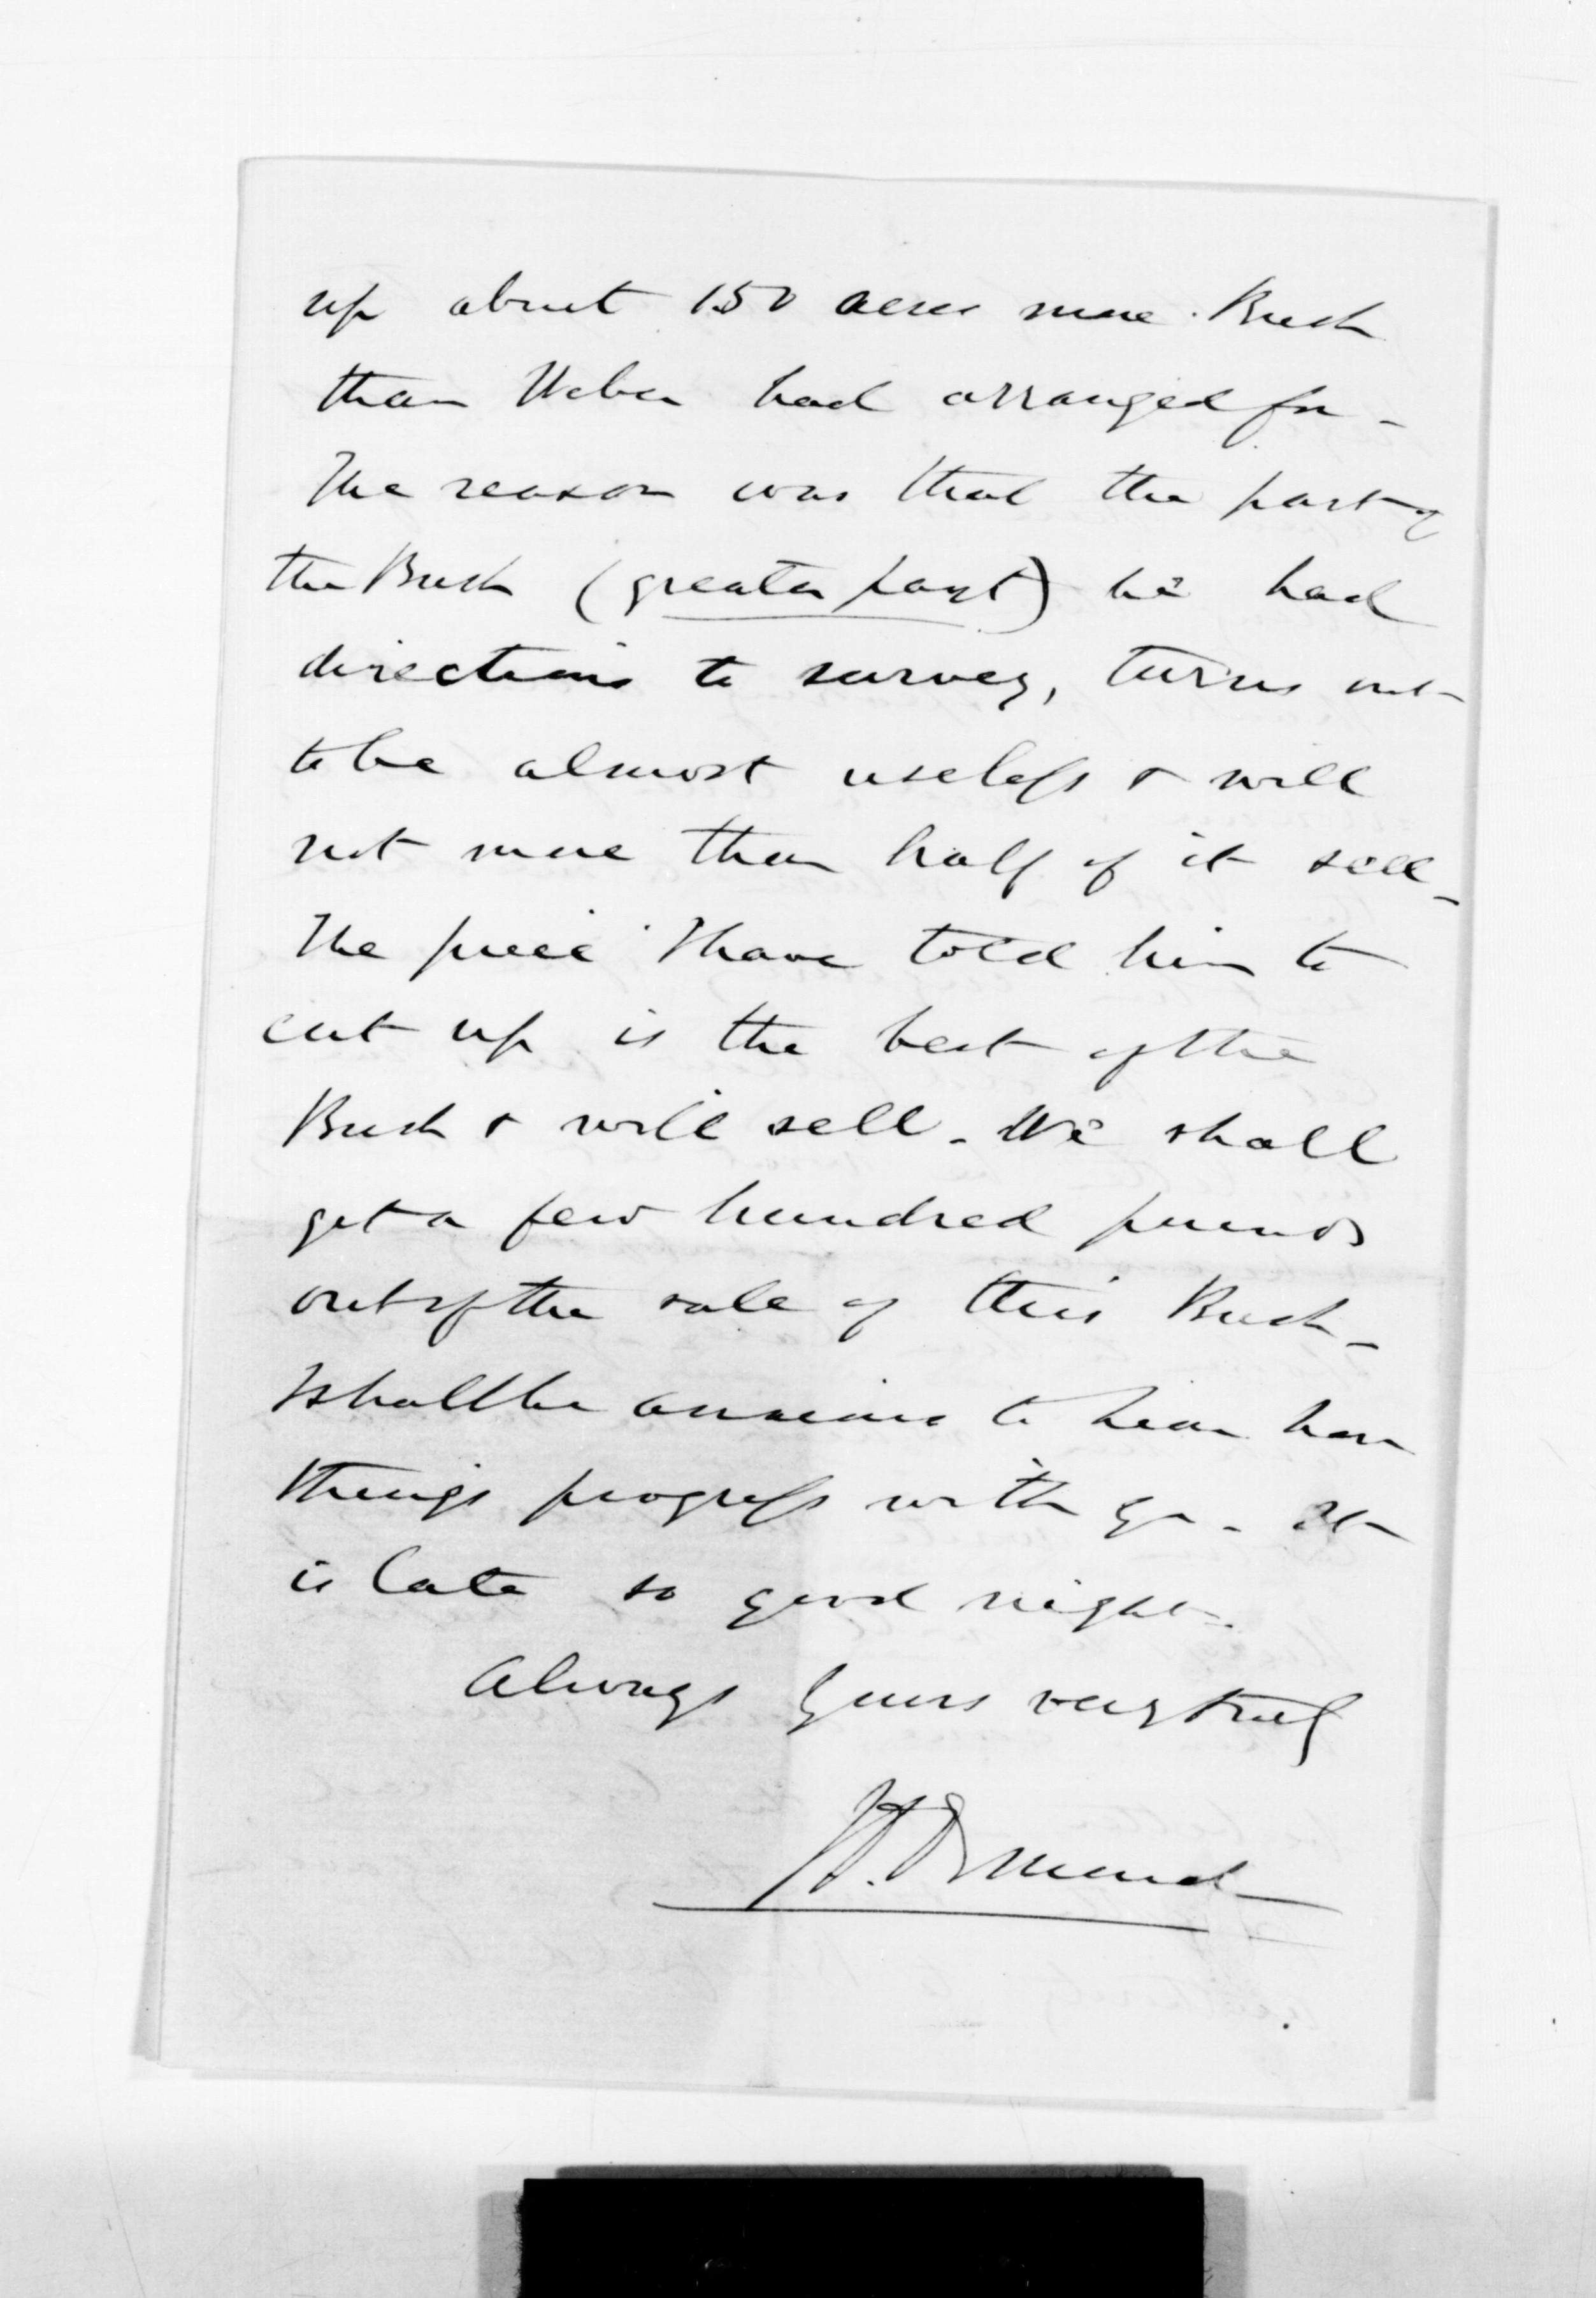 up about 150 acres more Bush
than Weber had arranged for -
The reason was that the part of
the Bush (greater part) he had
directions to survey, turns out
to be almost useless & will
not more than half of it sell -
The piece I have told him to
cut up is the best of the
Bush & will sell - We shall
get a few hundred pounds
out of the sale of this Bush -
I shall be anxious to hear how
things progress with you - It
is late so good night -
Always yours very truly
J.D. Ormond